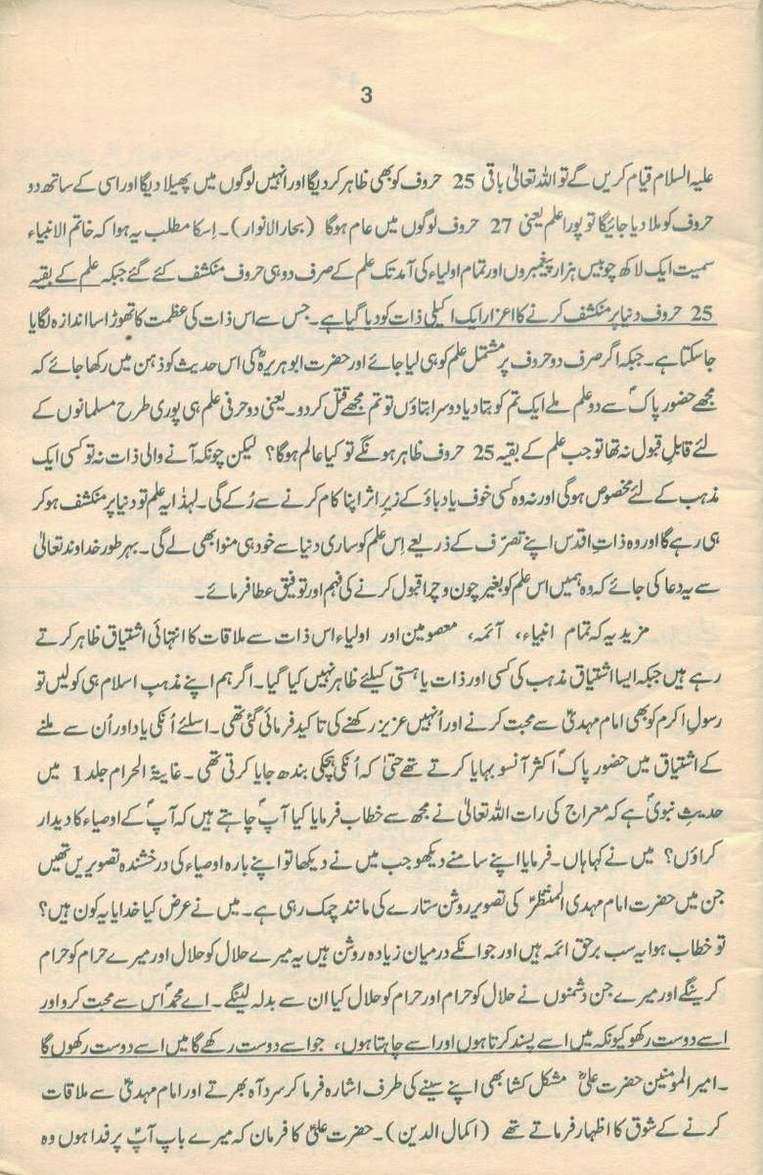 3
علیہ السلام قیام کریں گے تو اللہ تعالیٰ باقی 25 حروف کو بھی ظاہر کر دیگا اور انہیں لوگوں میں پھیلا دیگا اور اسی کے ساتھ دو
حروف کو ملا دیا جائیگا تو پورا علم یعنی 27 حروف لوگوں میں عام ہوگا (بحار الانوار)۔ اِسکا مطلب یہ ہوا کہ خاتم الانبیاء
سمیت ایک لاکھ چوبیس ہزار پیغمبروں اور تمام اولیاء کی آمد تک علم کے صرف دو ہی حروف منکشف کئے گئے جبکہ علم کے بقیہ
25 حروف دنیا پر منکشف کرنے کا اعزاز ایک اکیلی ذات کو دیا گیا ہے۔ جس سے اس ذات کی عظمت کا تھوڑا سا اندازہ لگایا
جاسکتا ہے۔ جبکہ اگر صرف دو حروف پر مشتمل علم کو ہی لیا جائے اور حضرت ابو ہریرہؓ کی اس حدیث کو ذہن میں رکھا جائے کہ
مجھے حضور پاکؐ سے دو علم ملے ایک تم کو بتا دیا دوسرا بتاؤں تو تم مجھے قتل کردو۔ یعنی دو حرفی علم ہی پوری طرح مسلمانوں کے
لئے قابلِ قبول نہ تھا تو جب علم کے بقیہ 25 حروف ظاہر ہونگے تو کیا عالم ہوگا؟ لیکن چونکہ آنے والی ذات نہ تو کسی ایک
مذہب کے لئے مخصوص ہوگی اور نہ وہ کسی خوف یا دباؤ کے زیرِ اثر اپنا کام کرنے سے رُکے گی۔ لہذٰا یہ علم تو دنیا پر منکشف ہو کر
ہی رہے گا اور وہ ذاتِ اقدس اپنے تصرّف کے ذریعے اِس علم کو ساری دنیا سے خود ہی منوا بھی لے گی۔ بہر طور خداوند تعالیٰ
سے یہ دعا کی جائے کہ وہ ہمیں اس علم کو بغیر چون و چرا قبول کرنے کی فہم اور توفیق عطا فرمائے۔
مزید یہ کہ تمام انبیاء، آئمہ، معصومین اور اولیاء اس ذات سے ملاقات کا انتہائی اشتیاق ظاہر کرتے
رہے ہیں جبکہ ایسا اشتیاق مذہب کی کسی اور ذات یا ہستی کیلئے ظاہر نہیں کیا گیا۔ اگر ہم اپنے مذہبِ اسلام ہی کو لیں تو
رسولِ اکرم کو بھی امام مہدیؑ سے محبت کرنے اور اُنہیں عزیز رکھنے کی تاکید فرمائی گئی تھی۔ اسلئے اُنکی یاد اور اُن سے ملنے
کے اشتیاق میں حضور پاکؐ اکثر آنسو بہایا کرتے تھے حتیٰ کہ اُنکی ہچکی بندھ جایا کرتی تھی۔ غایۃ الحرام جلد 1 میں
حدیثِ نبویؐ ہے کہ معراج کی رات اللہ تعالیٰ نے مجھ سے خطاب فرمایا کیا آپؐ چاہتے ہیں کہ آپؐ کے اوصیاء کا دیدار
کراؤں؟ میں نے کہا ہاں۔ فرمایا اپنے سامنے دیکھو جب میں نے دیکھا تو اپنے بارہ اوصیاء کی درخشندہ تصویریں تھیں
جن میں حضرت امام مہدی المنتظرؑ کی تصویر روشن ستارے کی مانند چمک رہی ہے۔ میں نے عرض کیا خدایا یہ کون ہیں؟
تو خطاب ہوا یہ سب برحق ائمہ ہیں اور جو انکے درمیان زیادہ روشن ہیں یہ میرے حلال کو حلال اور میرے حرام کو حرام
کرینگے اور میرے جن دشمنوں نے حلال کو حرام اور حرام کو حلال کیا ان سے بدلہ لینگے۔ اے محمدؐ اس سے محبت کرو اور
اسے دوست رکھو کیونکہ میں اسے پسند کرتا ہوں اور اسے چاہتا ہوں، جو اسے دوست رکھے گا میں اسے دوست رکھوں گا
۔ امیر المومنین حضرت علیؓ مشکل کشا بھی اپنے سینے کی طرف اشارہ فرما کر سرد آہ بھرتے اور امام مہدیؑ سے ملاقات
کرنے کے شوق کا اظہار فرماتے تھے (اکمال الدین)۔ حضرت علیؓ کا فرمان کہ میرے باپ آپؑ پر فدا ہوں وہ